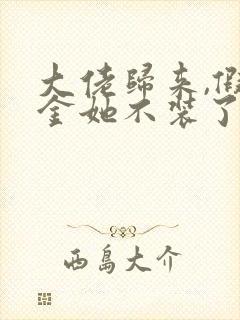 大佬歸来,假
金她不装了
西島大介